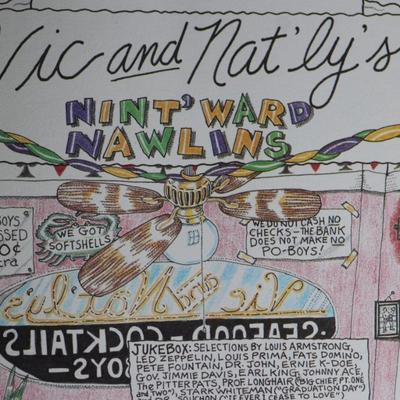 Vic and Nat'ly's
NINT' WARD
NAWLINS
BOYS
SSED
0¢
tra
WE GOT
SOFTSHELLS
WE DO NOT CASH NO
CHECKS - THE BANK
DOES NOT MAKE NO
PO-BOYS!
Vic and Nat'ly's
SEAFOOD · COCKTAILS
OYS —
JUKEBOX: SELECTIONS BY LOUIS ARMSTRONG,
LED ZEPPELIN, LOUIS PRIMA, FATS DOMINO,
PETE FOUNTAIN, DR. JOHN, ERNIE K-DOE,
GOV. JIMMIE DAVIS, EARL KING, JOHNNY ACE,
THE PITTER PATS, PROF. LONGHAIR ("BIG CHIEF, PT. ONE
and TWO"), STARK WHITEMAN ("GRADUATION DAY")
("IF EVER I CEASE TO LOVE")